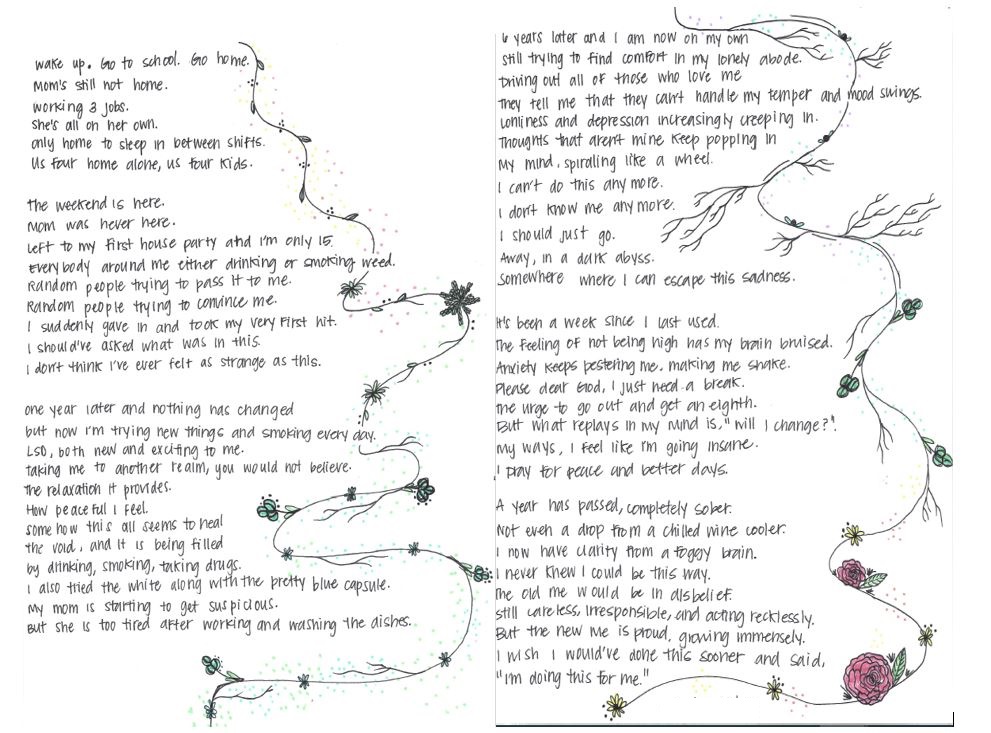 wake up. Go to school. Go home.
Mom's still not home.
working 3 jobs.
She's all on her own.
only home to sleep in between shifts.
Us four home alone, us four kids.
The weekend is here.
Mom was never here.
Left to my first house party and I'm only 15.
Everybody around me either drinking or smoking weed.
Random people trying to pass it to me.
Random people trying to convince me.
I suddenly gave in and took my very first hit.
I should've asked what was in this.
I don't think I've ever felt as strange as this.
one year later and nothing has changed
but now I'm trying new things and smoking every day.
LSD, both new and exciting to me.
taking me to another realm, you would not believe.
The relaxation it provides.
How peaceful I feel.
somehow this all seems to heal
the void, and it is being filled
by drinking, smoking, taking drugs.
I also tried the white along with the pretty blue capsule.
My mom is starting to get suspicious.
But she is too tired after working and washing the dishes.
6 years later and I am now on my own
still trying to find comfort in my lonely abode.
Driving out all of those who love me
They tell me that they can't handle my temper and mood swings.
Lonliness and depression increasingly creeping in.
Thoughts that aren't mine keep popping in
My mind, spiraling like a wheel.
I can't do this any more.
I don't know me any more.
I should just go.
Away, in a dark abyss.
Somewhere where I can escape this sadness.
It's been a week since I last used.
The feeling of not being high has my brain bruised.
Anxiety keeps pestering me, making me shake.
Please dear God, I just need a break.
The urge to go out and get an eighth.
But what replays in my mind is, "will I change?"
My ways, I feel like I'm going insane.
I pray for peace and better days.
A year has passed, completely sober.
Not even a drop from a chilled wine cooler.
I now have clarity from a foggy brain.
I never knew I could be this way.
The old me would be in disbelief.
still careless, irresponsible, and acting recklessly.
But the new me is proud, growing immensely.
I wish I would've done this sooner and said,
"I'm doing this for me."